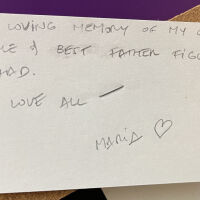 LOVING MEMORY OF MY
& BEST FATHER FIGU
HAD.
LOVE ALL
MARIA